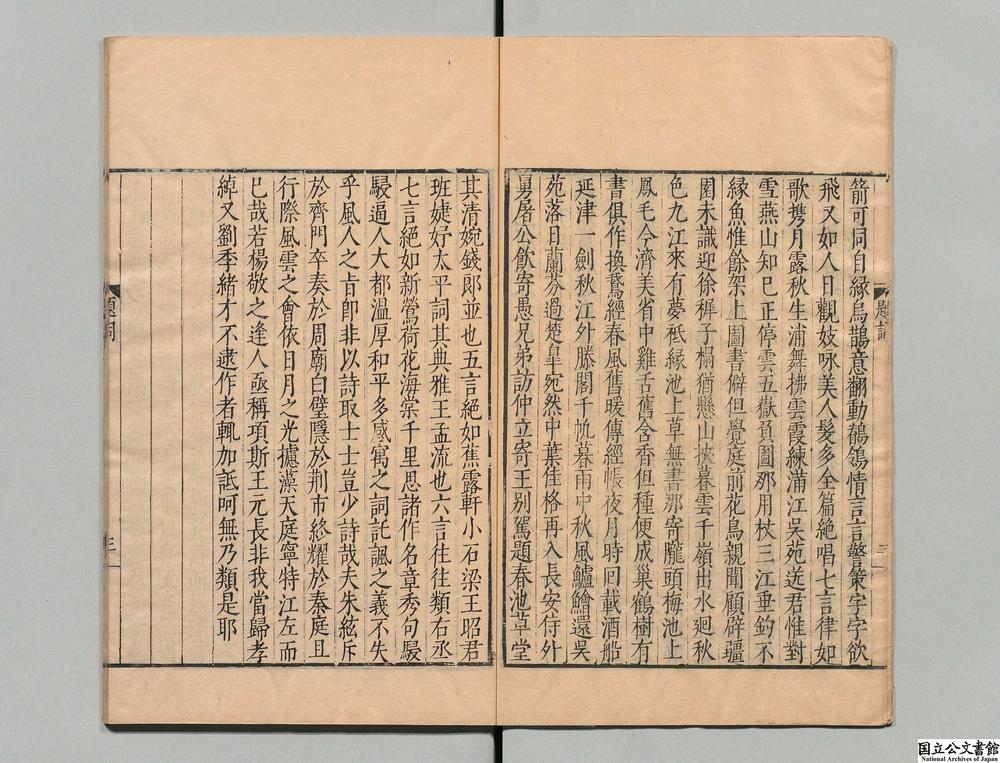 箭可同自緣烏鵲意翻動鶺鴒情言言警策字字欲
飛又如人日觀妓咏美人髮多全篇絶唱七言律如
歌攜月露秋生浦舞拂雲霞練滿江吳苑送君惟對
雪燕山知己正停雲五嶽負圖那用杖三江垂釣不
緣魚惟餘架上圖書僻但覺庭前花鳥親聞顧辟疆
園未識迎徐稺子榻猶懸山挾暮雲千嶺出水廻秋
色九江來有夢秪緣池上草無書那寄隴頭梅池上
鳳毛今濟美省中雞舌舊含香但種便成巢鶴樹有
書俱作換鵞經春風舊暖傳經帳夜月時回載酒船
延津一劍秋江外滕閣千帆暮雨中秋風鱸鱠還吳
苑落日蘭芬過楚臯宛然中葉佳格再入長安侍外
舅屠公飲寄愚兄弟訪仲立寄王别駕題春池草堂
題詞
三
其清婉錢郎並也五言絶如蕉露軒小石梁王昭君
班婕妤太平詞其典雅王孟流也六言往往類右丞
七言絶如新鶯荷花海棠千里思諸作名章秀句駸
駸逼人大都温厚和平多感寓之詞託諷之義不失
乎風人之肯卽非以詩取士士豈少詩哉夫朱絃斥
於齊門卒奏於周廟白璧隱於荆市終耀於秦庭且
行際風雲之會依日月之光攄藻天庭寧特江左而
巳哉若楊敬之逢人亟稱項斯王元長非我當歸孝
綽又劉季緒才不逮作者輒加詆呵無乃類是耶
題詞
三
国立公文書館
National Archives of Japan